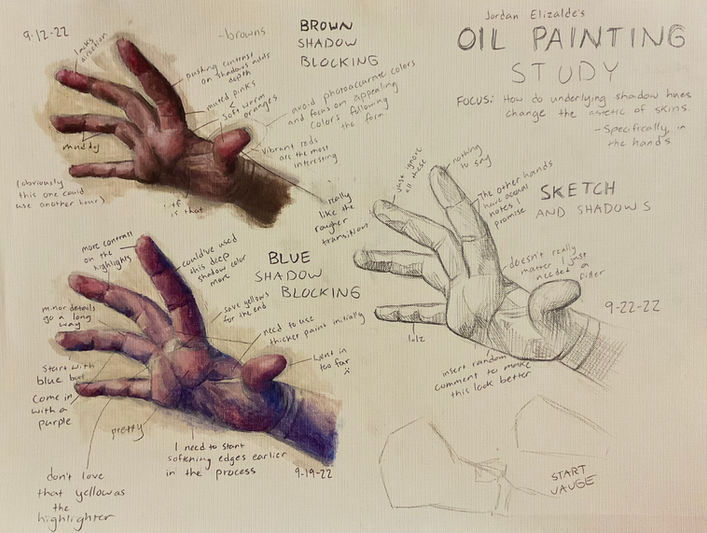 9-12-22
lacks
direction
-browns
BROWN
SHADOW
BLOCKING
pushing contrast
on shadows adds
depth
muted pinks
<
soft warm
oranges
avoid photoaccurate colors
and focus on appealing
colors following
the form
Vibrant reds
are the most
interesting
muddy
(obviously
this one could
use another hour)
is that
really
like the
rougher
transitions
Jordan Elizalde's
OIL PAINTING
STUDY
FOCUS: How do underlying shadow hues
change the astetic of skins.
-Specifically, in
the hands
just ignore
all these
nothing
to say
The other hands
have actual
notes I
promise
SKETCH
AND SHADOWS
doesn't really
matter I just
needed a
filler
9-22-22
lolz
insert random
comment to make
this look better
START
VAUGE
more contrast
on the
highlights
could've used
this deep
shadow color
more
BLUE
SHADOW
BLOCKING
minor details
go a long
way
save yellows
for the end
need to use
thicker paint initially
went in
too far
Start with
blue
Come in
with a
purple
pretty
I need to start
softening edges earlier
in the process
9-19-22
don't love
that yellow as
the
highlighter